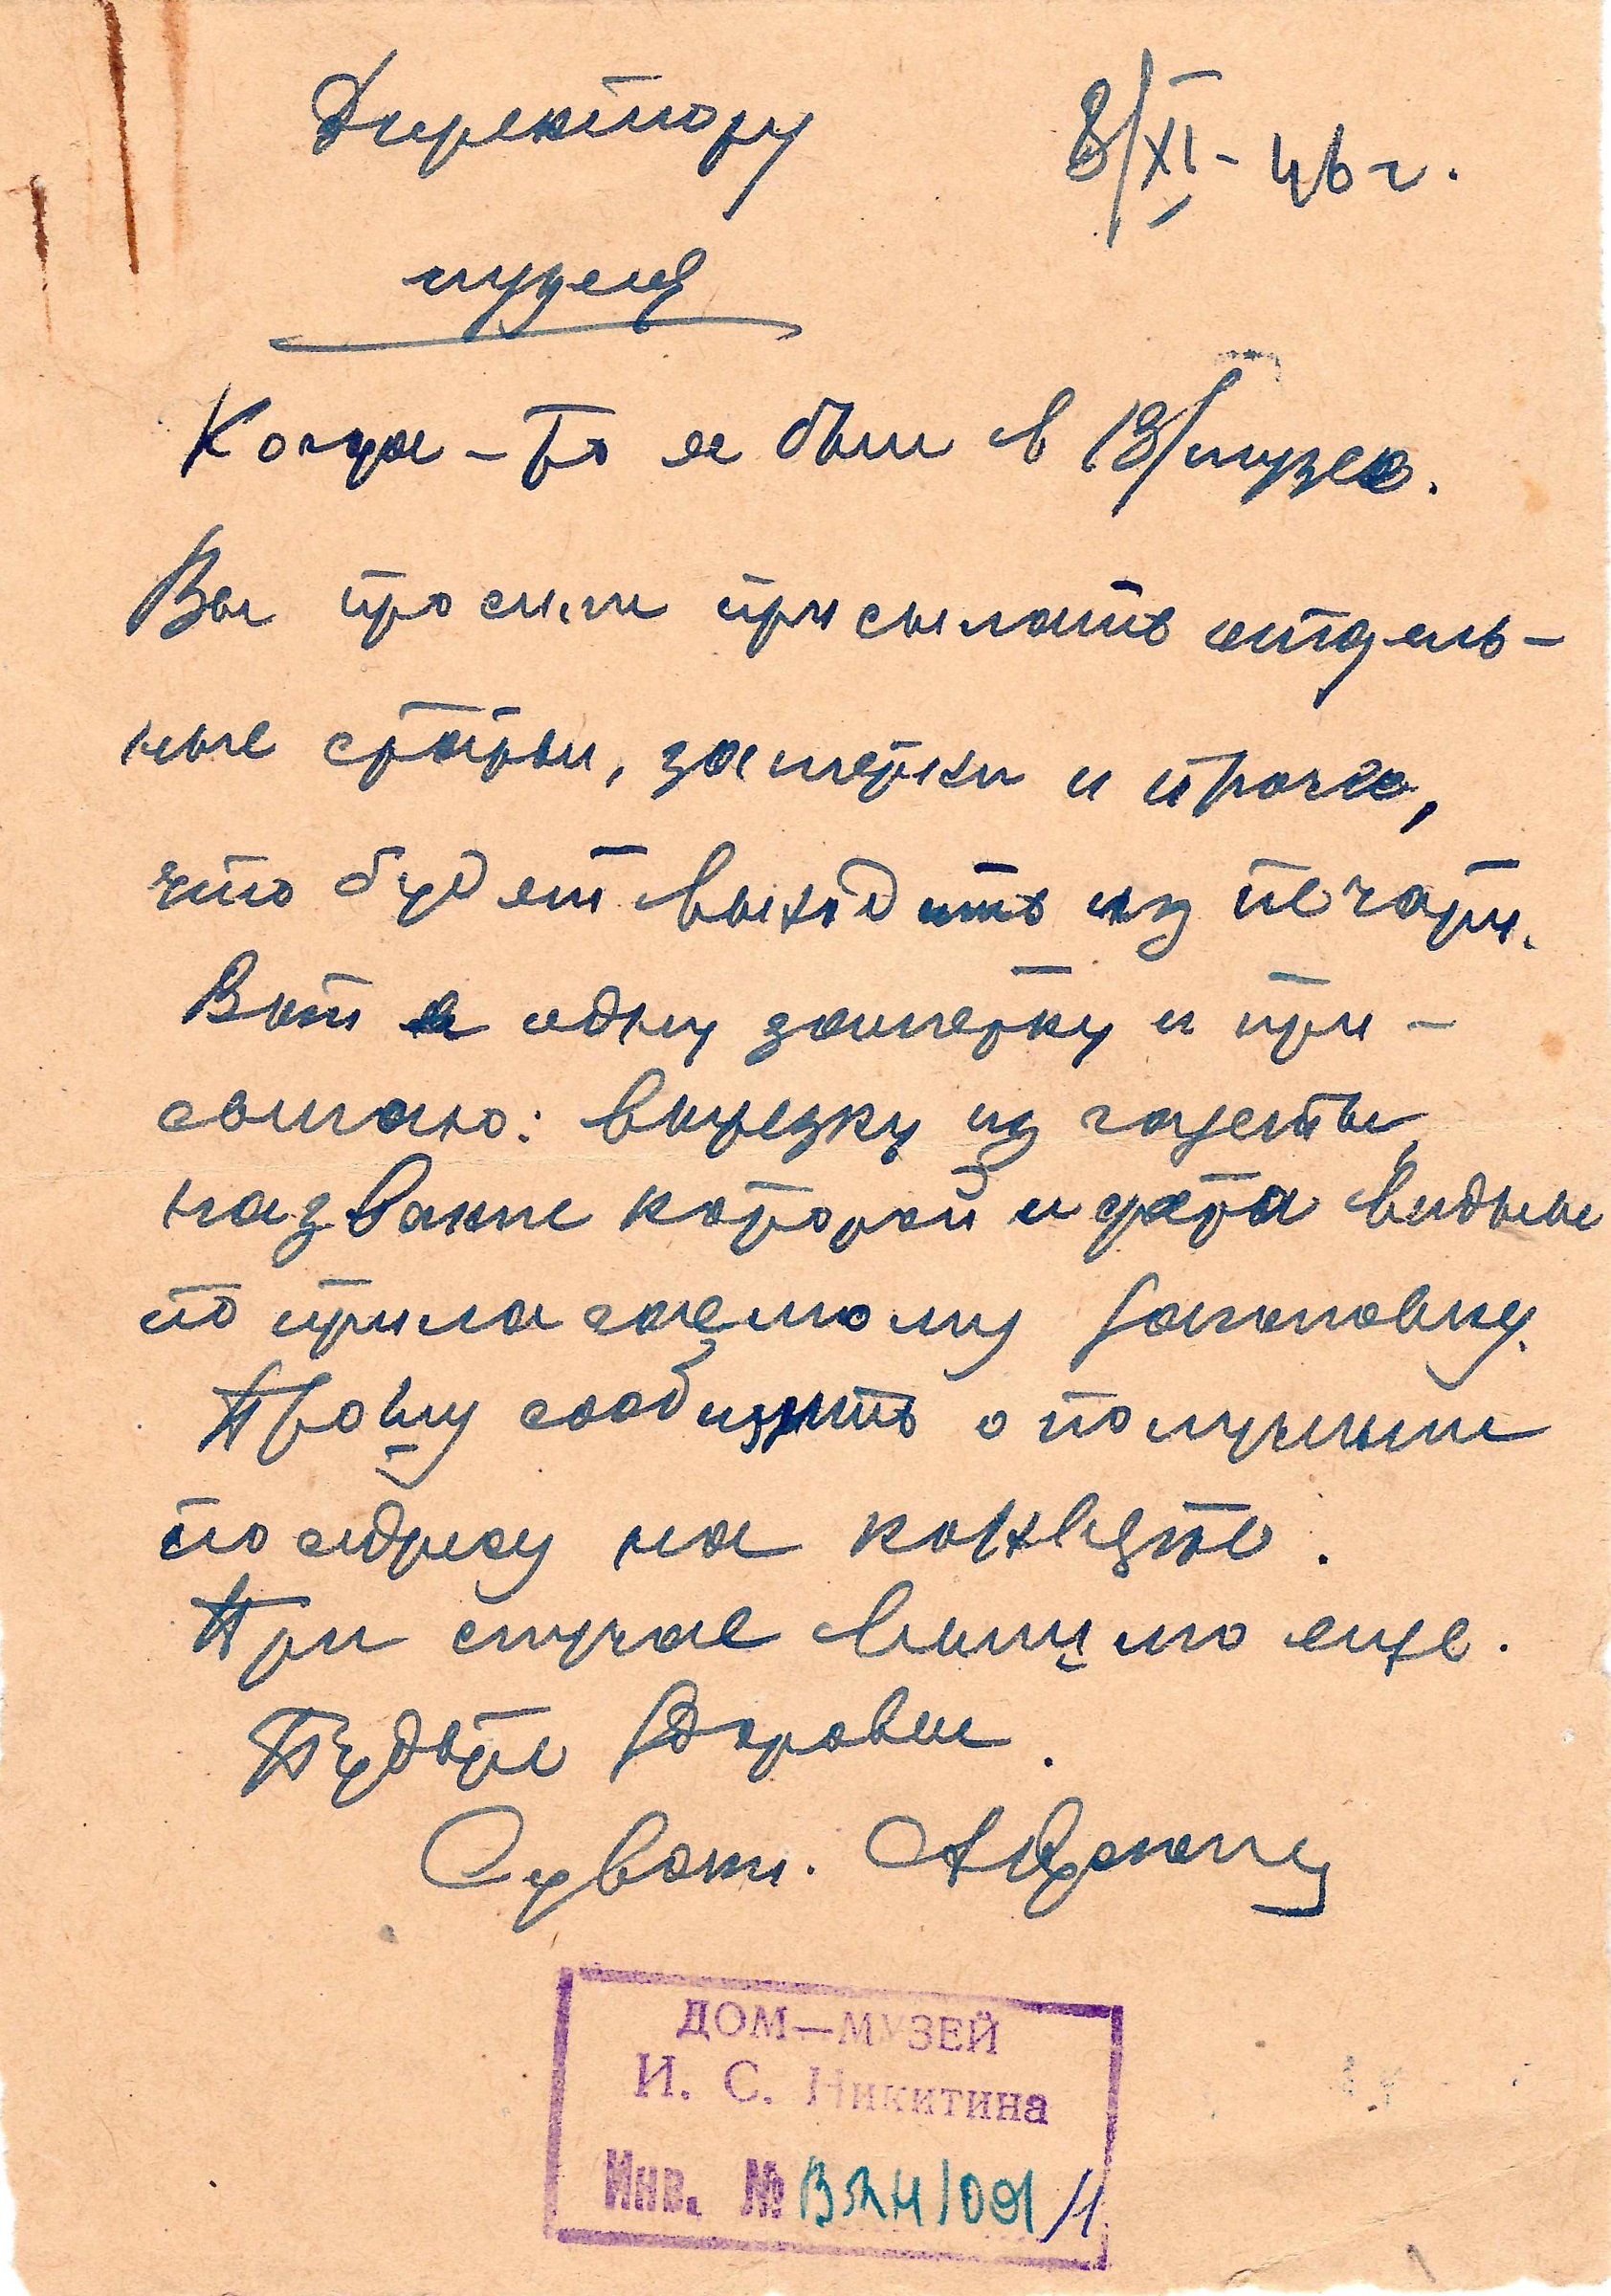 Директору 8/XI - 46 г.
музея
Когда-то я был в В/музее.
Вы просили присылать отдель-
ные статьи, заметки и проче,
что будет выходить из печати.
Вот я одну заметку и при-
сылаю: вырезку из газеты,
название которой и дата видные
по прилагаемому заголовку.
Прошу сообщить о получении
по адресу на конверте.
При случае вышлю еще.
Будьте здоровы.
С уваж.
ДОМ—МУЗЕЙ
И. С. Никитина
Инв. №